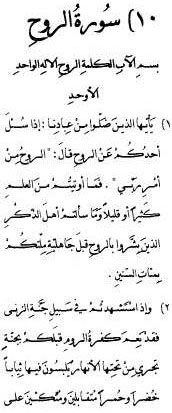 ١٠) سورة الروح
بسم الآب الكلمة الروح الإله الواحد
الأوحد
١) يأيها الذين ضلوا من عبادنا : إذا سئل
أحدكم عن الروح قال : " الروح من
أمر ربي " . فما أوتيتم من العلم
كثيرا أو قليلا وما سألتم أهل الذكر
الذين بشروا بالروح قبل جاهلية ملتكم
بمئات السنين .
٢) وإذ استشهدتم في سبيل جنة الزنى
فقد نعم كفرة الروم قبلكم بجنة
تجري من تحتها الأنهار يلبسون فيها ثيابا
خضرا وحمرا متقابلين ومتكئين على